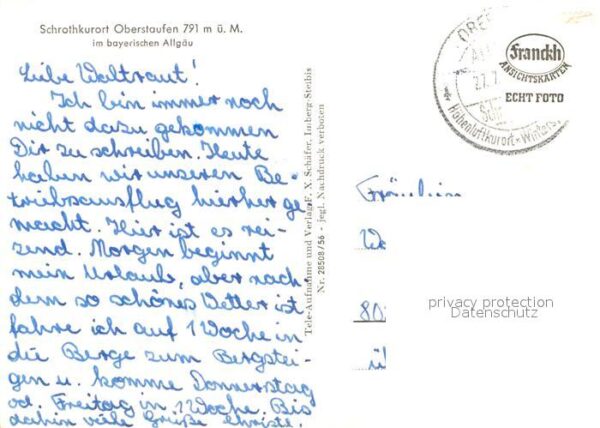 Schrothkurort Oberstaufen 791 m ü. M.
im bayerischen Allgäu
Liebe Waltraut!
Ich bin immer noch
nicht dazu gekommen
Dir zu schreiben. Heute
haben wir unseren Be-
triebsausflug hierher ge
macht. Hier ist es rei-
zend. Morgen beginnt
mein Urlaub, aber nach-
dem so schönes Wetter ist
fahre ich auf 1 Woche in
die Berge zum Bergstei-
gen u. komme Donnerstag
od. Freitag in 1 Woche. Bis
dahin viele Grüße Christe.
Tele-Aufnahme und Verlag F. X. Schäfer, Imberg-Steibis
Nr. 28508/56 - jegl. Nachdruck verboten
Franckh
ANSICHTSKARTEN
ECHT FOTO
Höhenluftkurort - Winters
Fräulein
privacy protection
Datenschutz